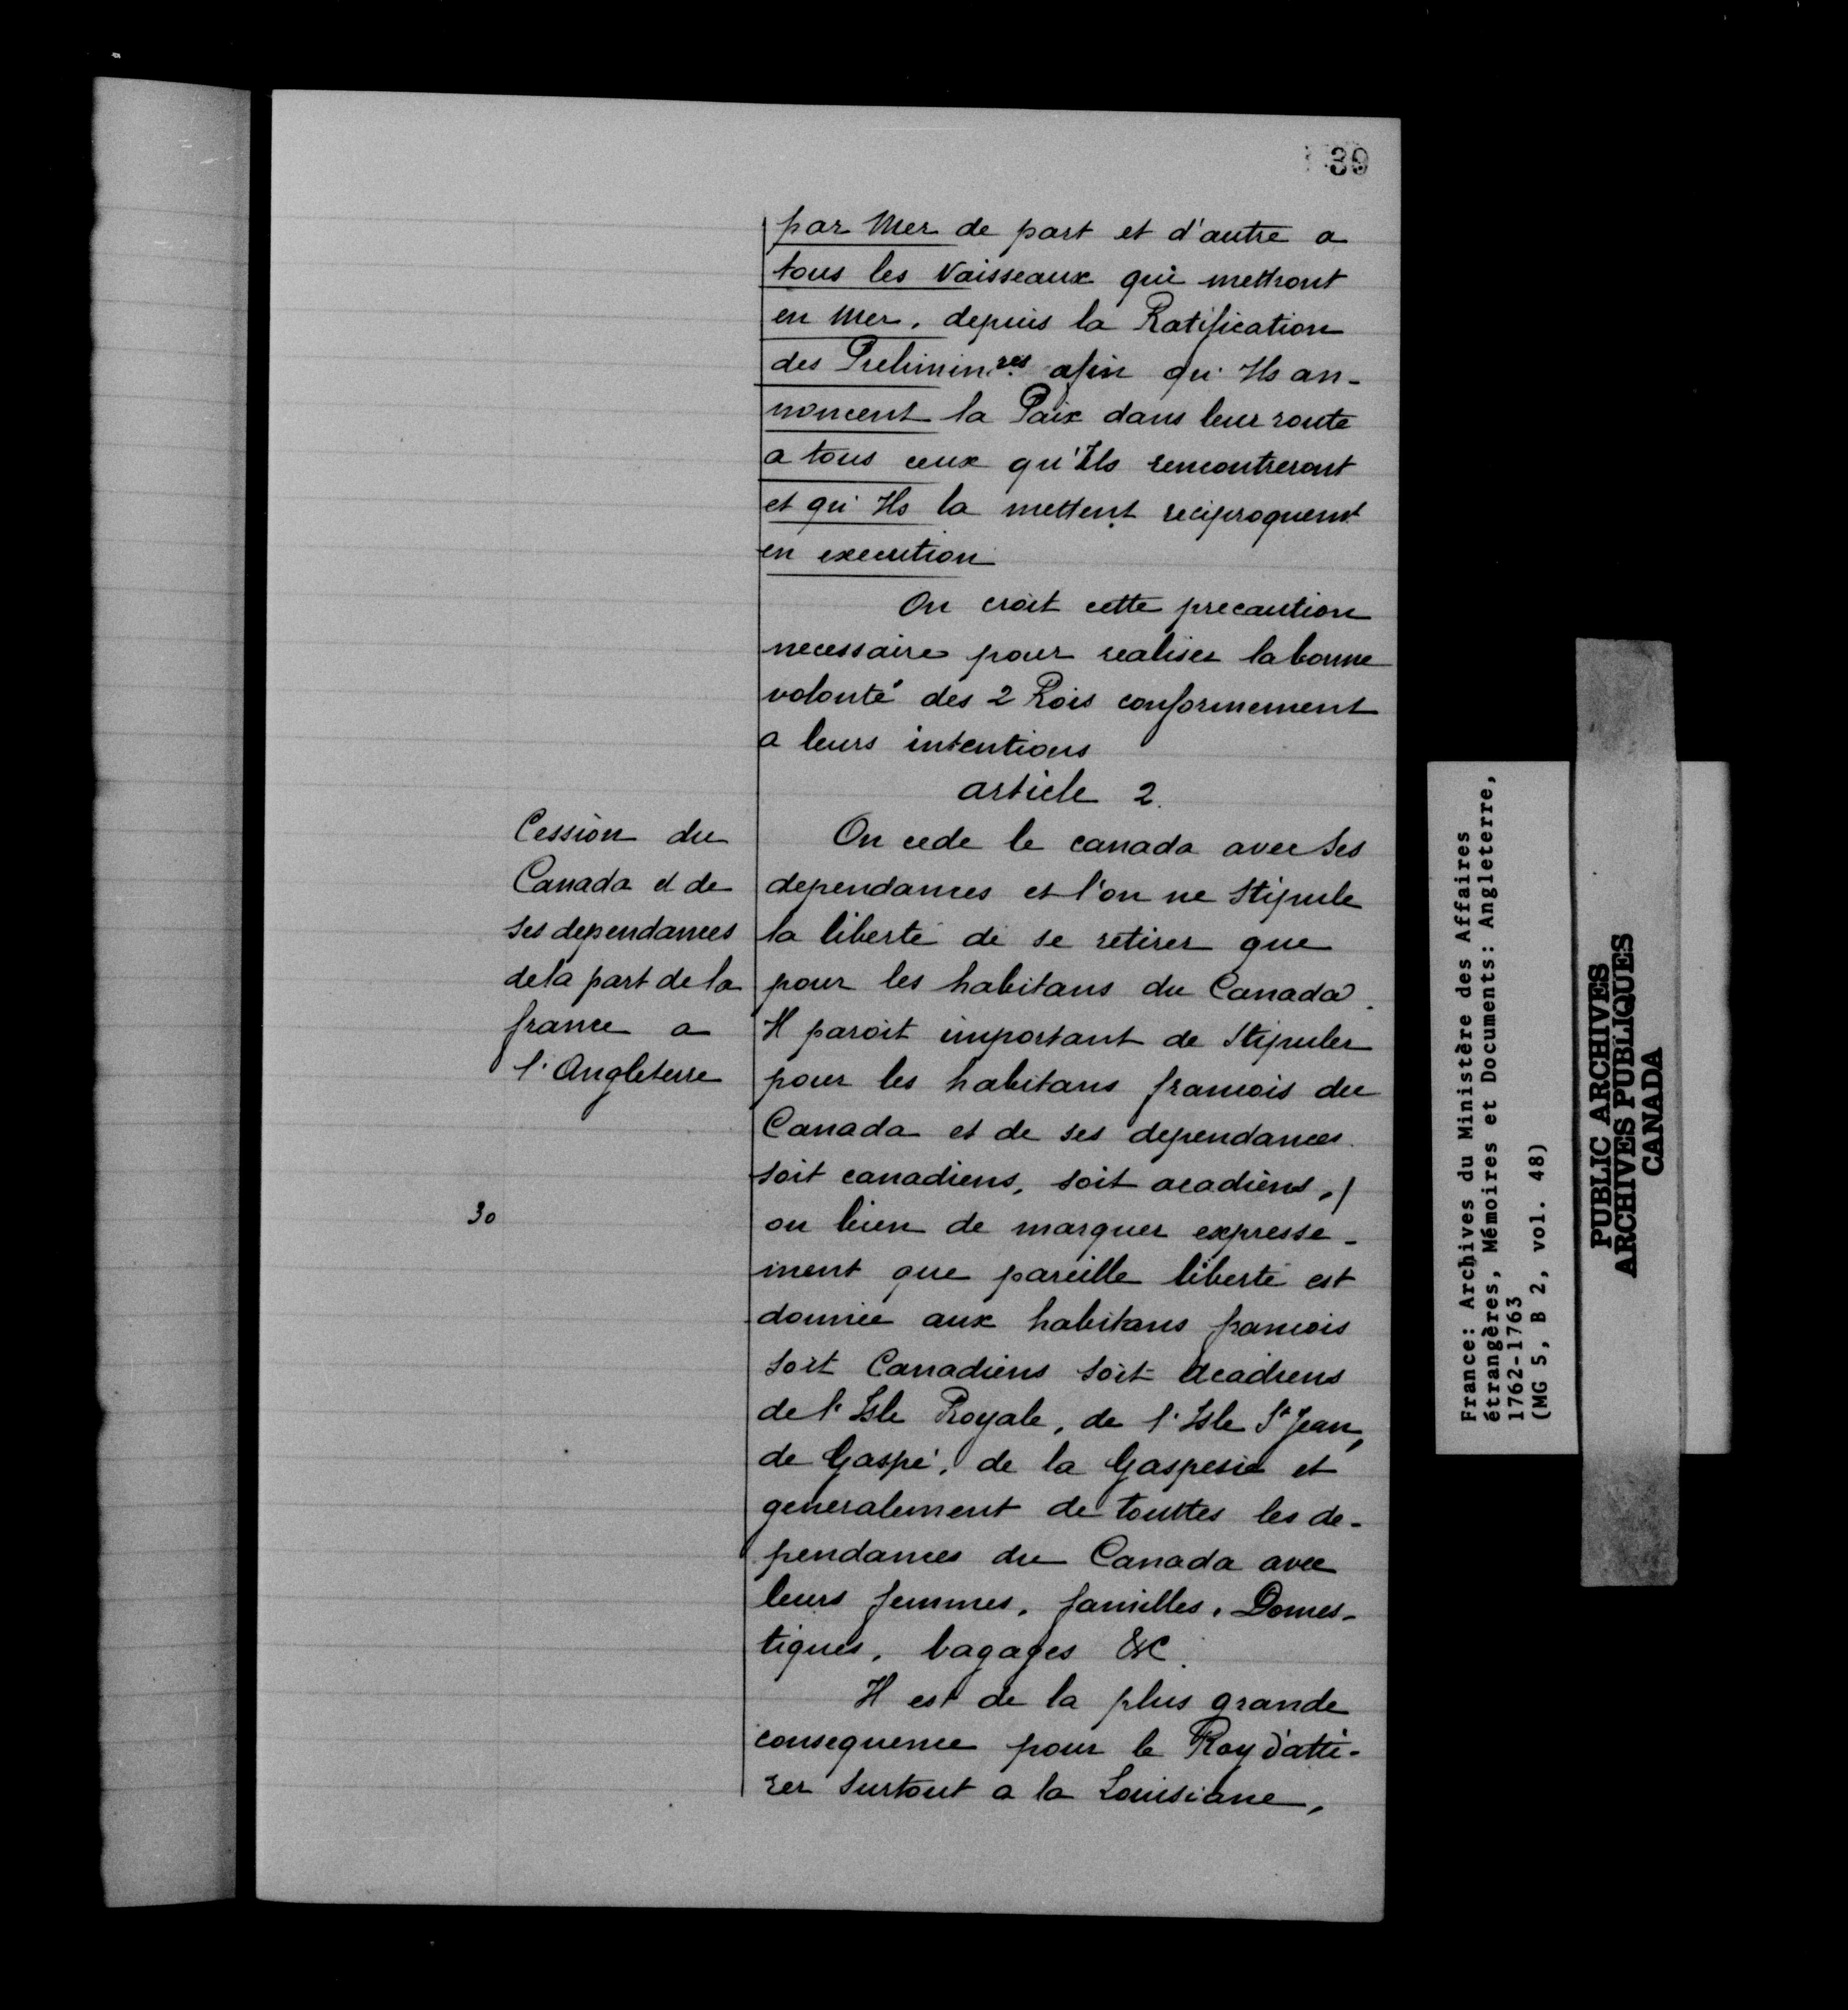 39
par Mer de part et d'autre a
tous les Vaisseaux qui mettront
en Mer, depuis la Ratification
des Prelimin.res afin qu'Ils an-
noncent la Paix dans leur route
a tous ceux qu'Ils rencontreront
et qu'Ils la mettent reciproquemt
en execution
On croit cette precaution
necessaire pour realiser la bonne
volonté des 2 Rois conformement
a leurs intentions
article 2.
Cession du
Canada et de
ses dependances
de la part de la
france a
l'Angleterre
On cede le canada avec ses
dependances et l'on ne Stipule
la liberté de se retirer que
pour les habitans du Canada.
Il paroit important de Stipuler
pour les habitans francois du
Canada et de ses dependances.
soit canadiens, soit acadiens, /
30
ou bien de marquer expresse-
ment que pareille liberté est
donnée aux habitans francois
soit Canadiens soit Acadiens
de l'Isle Royale, de l'Isle St Jean,
de Gaspé, de la Gaspesie et
generalement de touttes les de-
pendances du Canada avec
leurs femmes, familles, Domes-
tiques, bagages &c.
Il est de la plus grande
consequence pour le Roy d'atti-
rer surtout a la Louisiane,
France: Archives du Ministère des Affaires
étrangères, Mémoires et Documents: Angleterre,
1762-1763
(MG 5, B 2, vol. 48)
PUBLIC ARCHIVES
ARCHIVES PUBLIQUES
CANADA